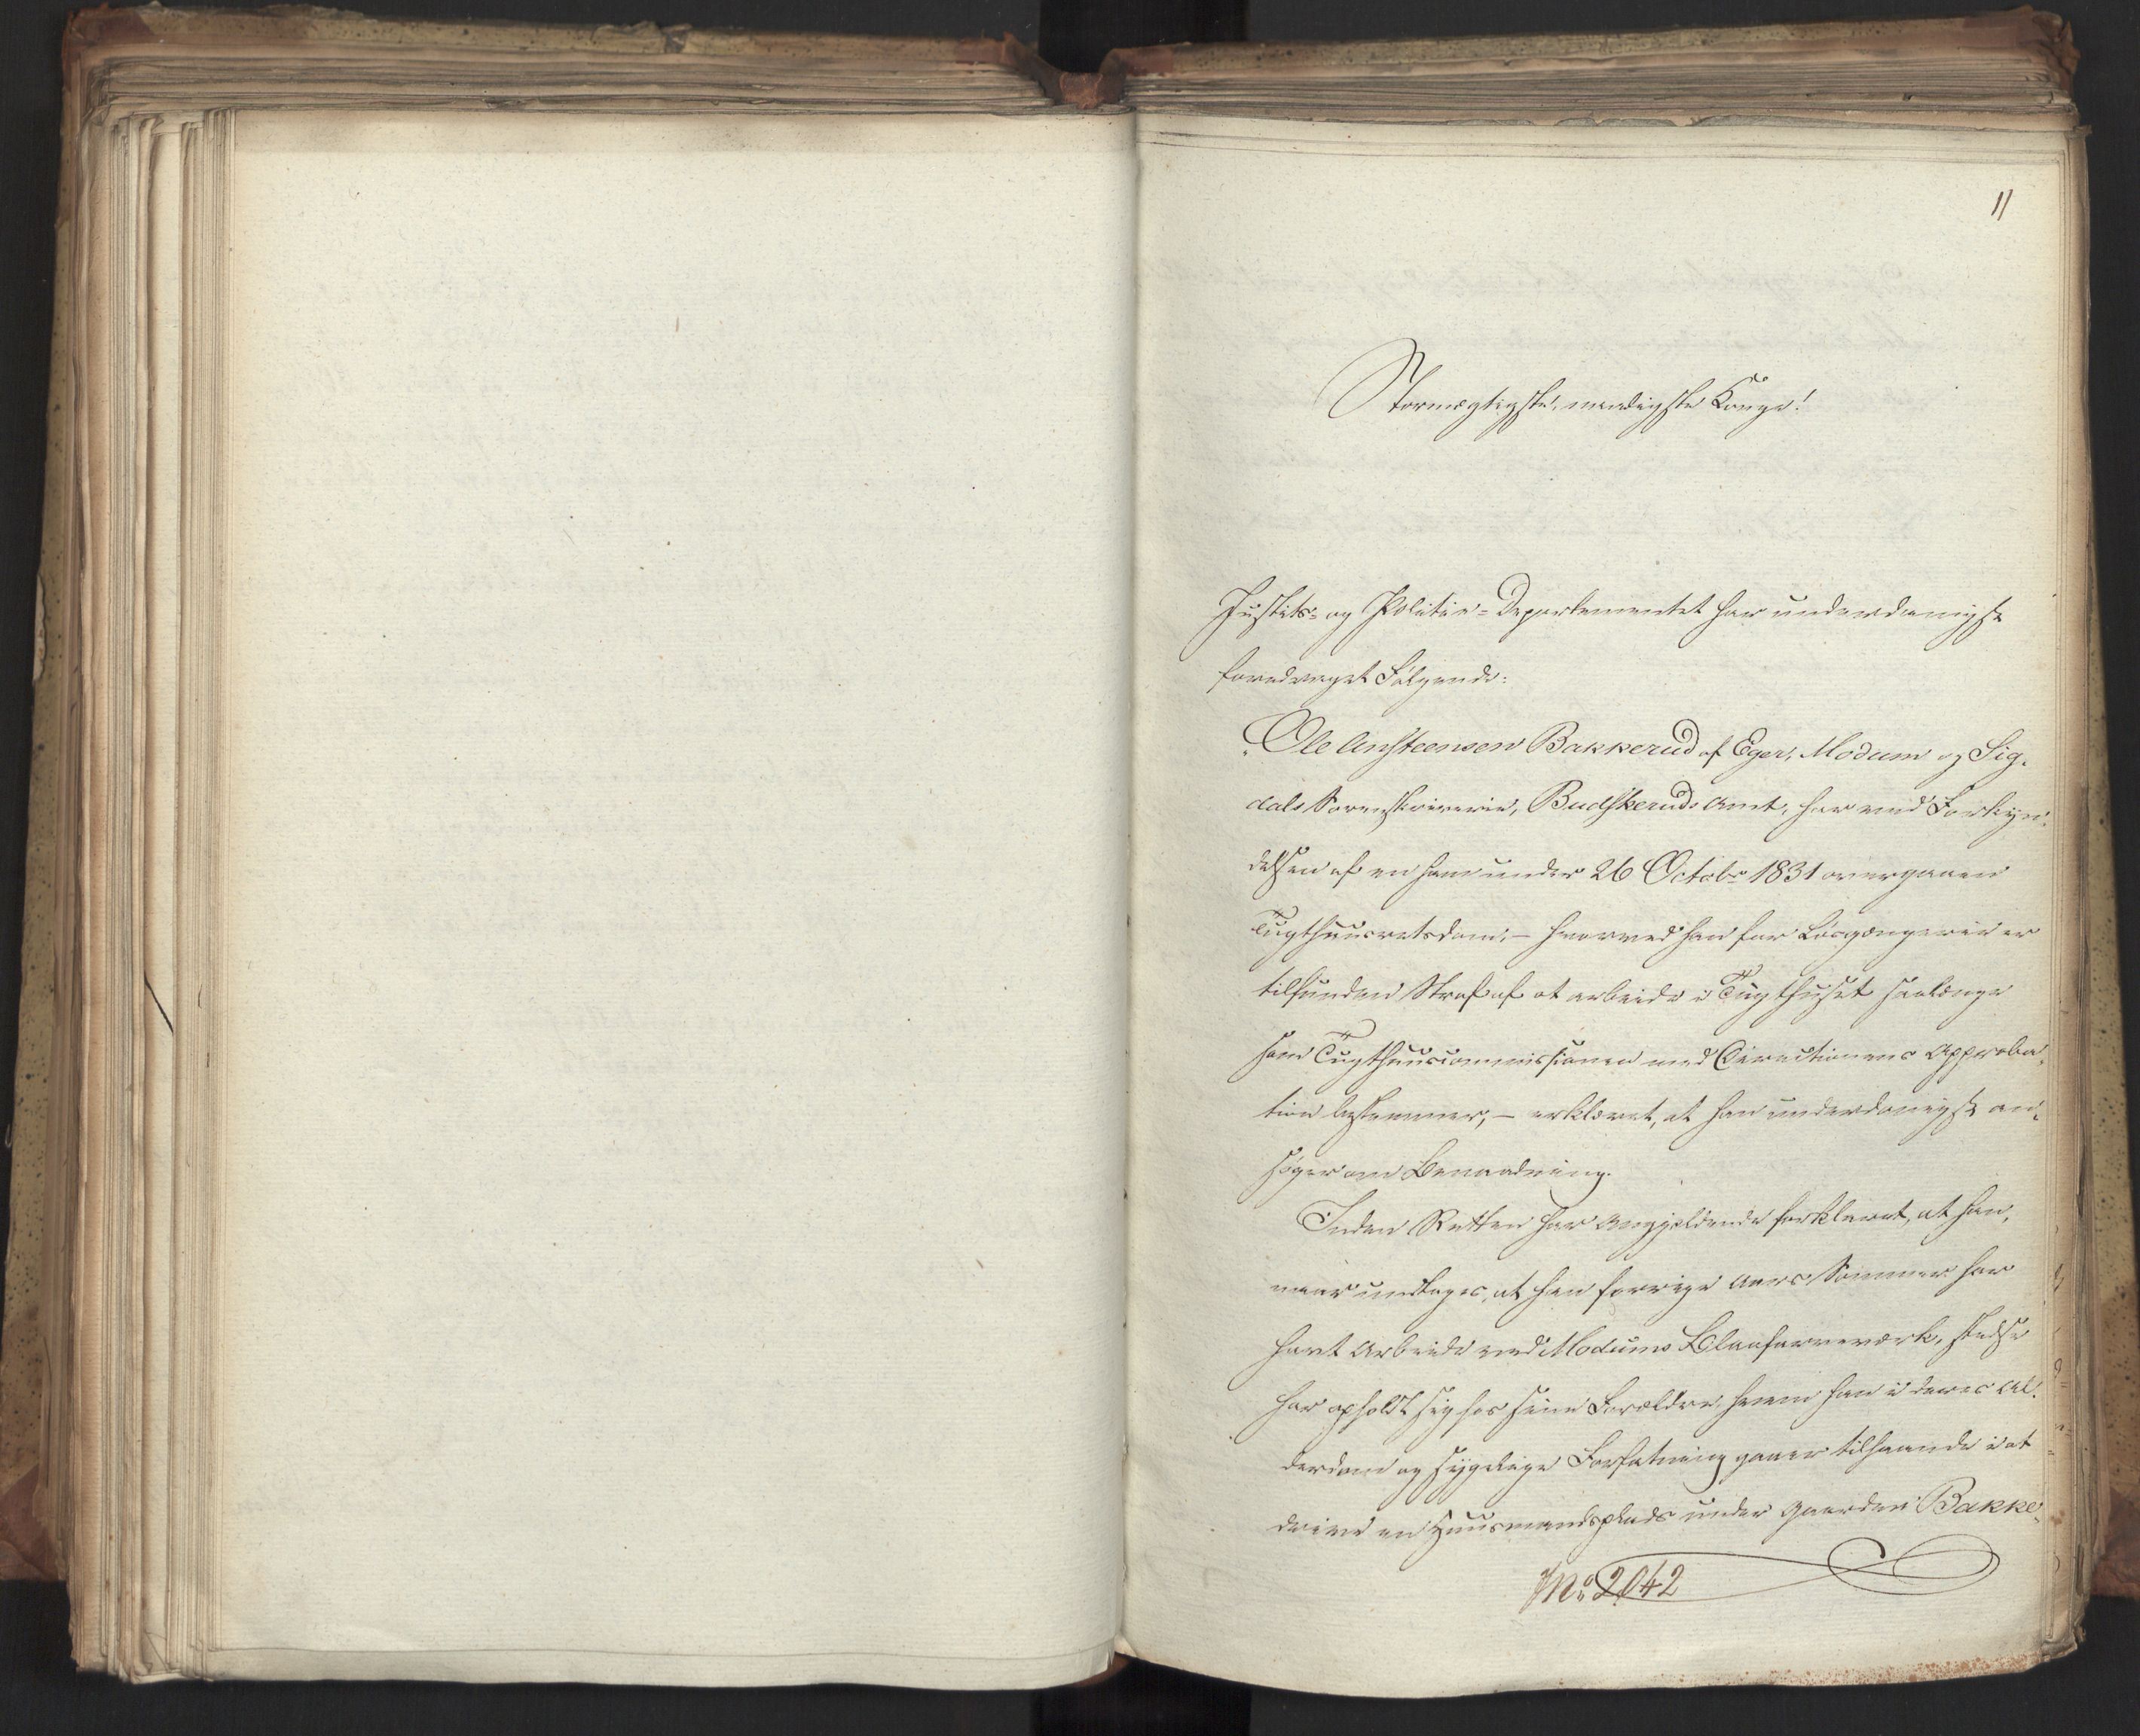 11
Stormægtigste, naadigste Konge!
Justits- og Politie-Departementet har underdanigst
foredraget Følgende:
"Ole Ansteensen Bakkerud af Eger, Modum og Sig-
dals Sorenskriverie, Budskeruds Amt, har ved Forkyn-
delsen af en ham under 26 Octobr 1831 overgaaen
Tugthuusretsdom, – hvorved han for Løsgængerie er
tilfunden Straf af at arbeide i Tugthuset saalænge
som Tugthuuscommissionen med Directionens Approba-
tion bestemmer, – erklæret, at han underdanigst an-
søger om Benaadning.
Inden Retten har Angjeldende forklaret, at han,
naar undtages, at han forrige Aars Sommer har
havt Arbeide ved Modums Blaafarveværk, stedse
har opholdt sig hos sine Forældre, hvem han i deres Al-
derdom og sygelige Forfatning gaaer tilhaande i at
drive en Huusmandsplads under Gaarden Bakke-
No 2042